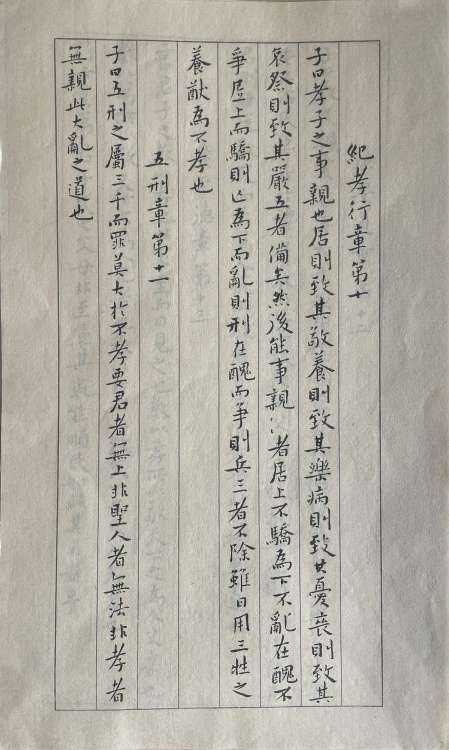 紀孝行章第十
子曰孝子之事親也居則致其敬養則致其樂病則致其憂喪則致其
哀祭則致其嚴五者備矣然後能事親〻者居上不驕為下不亂在醜不
爭居上而驕則亡為下而亂則刑在醜而爭則兵三者不除雖日用三牲之
養猷為不孝也
五刑章第十一
子曰五刑之屬三千而罪莫大於不孝要君者無上非聖人者無法非孝者
無親此大亂之道也